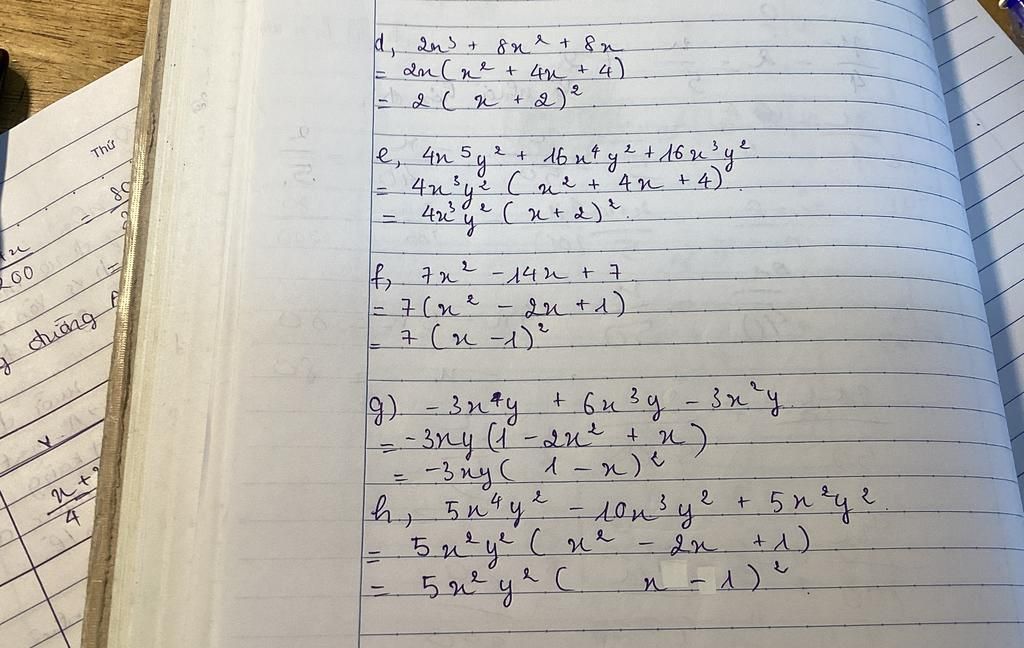 Thứ
80
x
200
chường
x +
4
d, 2x³ + 8x² + 8x
= 2x( x² + 4x + 4)
= 2 ( x + 2)²
e, 4x⁵y² + 16x⁴y² + 16x³y²
= 4x³y² ( x² + 4x + 4)
= 4x³y² ( x + 2)².
f, 7x² - 14x + 7
= 7 (x² - 2x + 1)
= 7 (x - 1)²
g) - 3x⁴y + 6x³y - 3x²y
= -3xy (1 - 2x² + x)
= -3xy ( 1 - x)²
h, 5x⁴y² - 10x³y² + 5x²y²
= 5x²y² ( x² - 2x + 1)
= 5x²y² ( x - 1)²